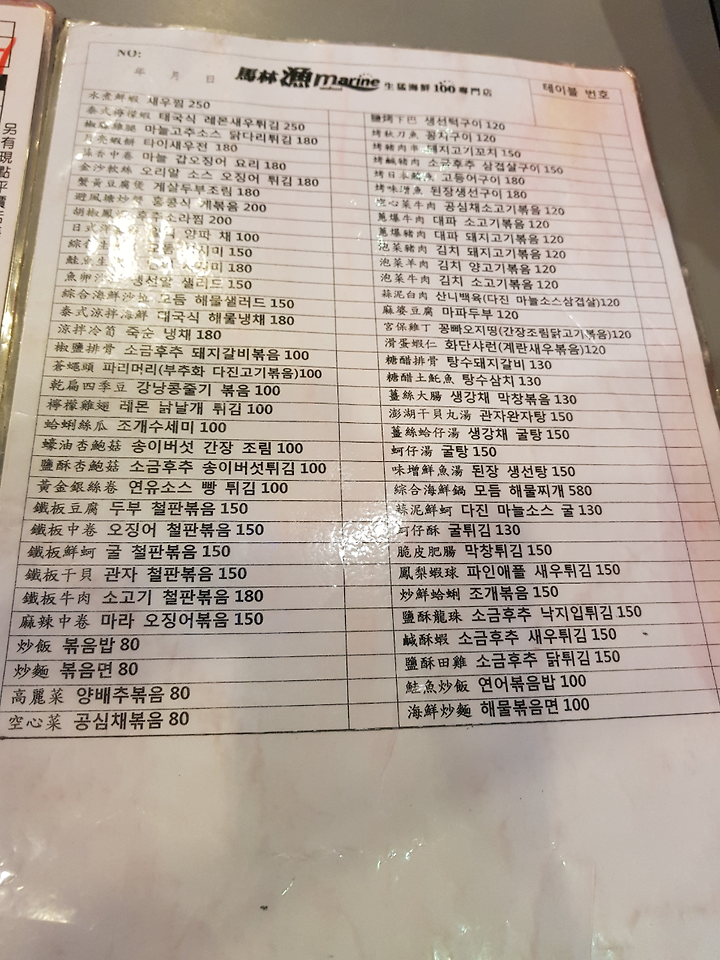 NO:
年 月 日
馬林漁 marine 生猛海鮮100專門店
테이블 번호
水煮鮮蝦 새우찜 250
泰式檸檬蝦 태국식 레몬새우튀김 250
마늘고추소스 닭다리튀김 180
月亮蝦餅 타이새우전 180
蒜香中卷 마늘 갑오징어 요리 180
金沙軟絲 오리알 소스 오징어 튀김 180
蟹黃豆腐煲 게살두부조림 180
避風塘炒蟹 홍콩식 게볶음 200
胡椒鳳 후추소라찜 200
日式 양파 채 100
綜合生 150
鮭魚生 180
魚卵 생선알 샐러드 150
綜合海鮮沙拉 모듬 해물샐러드 150
泰式涼拌海鮮 태국식 해물냉채 180
涼拌冷筍 죽순 냉채 180
椒鹽排骨 소금후추 돼지갈비볶음 100
蒼蠅頭 파리머리(부추화 다진고기볶음)100
乾扁四季豆 강낭콩줄기 볶음 100
檸檬雞翅 레몬 닭날개 튀김 100
蛤蜊絲瓜 조개수세미 100
蠔油杏鮑菇 송이버섯 간장 조림 100
鹽酥杏鮑菇 소금후추 송이버섯튀김 100
黃金銀絲卷 연유소스 빵 튀김 100
鐵板豆腐 두부 철판볶음 150
鐵板中卷 오징어 철판볶음 150
鐵板鮮蚵 굴 철판볶음 150
鐵板干貝 관자 철판볶음 150
鐵板牛肉 소고기 철판볶음 180
麻辣中卷 마라 오징어볶음 150
炒飯 볶음밥 80
炒麵 볶음면 80
高麗菜 양배추볶음 80
空心菜 공심채볶음 80
鹽烤下巴 생선턱구이 120
烤秋刀魚 꽁치구이 120
烤豬肉串 돼지고기꼬치 150
烤鹹豬肉 소금후추 삼겹살구이 150
烤日本鯖魚 고등어구이 180
烤味噌魚 된장생선구이 180
空心菜牛肉 공심채소고기볶음 120
蔥爆牛肉 대파 소고기볶음 120
蔥爆豬肉 대파 돼지고기볶음 120
泡菜豬肉 김치 돼지고기볶음 120
泡菜羊肉 김치 양고기볶음 120
泡菜牛肉 김치 소고기볶음 120
蒜泥白肉 산니백육(다진 마늘소스삼겹살)120
麻婆豆腐 마파두부 120
宮保雞丁 꽁빠오지띵(간장조림닭고기볶음)120
滑蛋蝦仁 화단샤런(계란새우볶음)120
糖醋排骨 탕수돼지갈비 130
糖醋土魠魚 탕수삼치 130
薑絲大腸 생강채 막창볶음 130
澎湖干貝丸湯 관자완자탕 150
薑絲蛤仔湯 생강채 굴탕 150
蚵仔湯 굴탕 150
味增鮮魚湯 된장 생선탕 150
綜合海鮮鍋 모듬 해물찌개 580
蒜泥鮮蚵 다진 마늘소스 굴 130
蚵仔酥 굴튀김 130
脆皮肥腸 막창튀김 150
鳳梨蝦球 파인애플 새우튀김 150
炒鮮蛤蜊 조개볶음 150
鹽酥龍珠 소금후추 낙지입튀김 150
鹹酥蝦 소금후추 새우튀김 150
鹽酥田雞 소금후추 닭튀김 150
鮭魚炒飯 연어볶음밥 100
海鮮炒麵 해물볶음면 100
另有現點平價